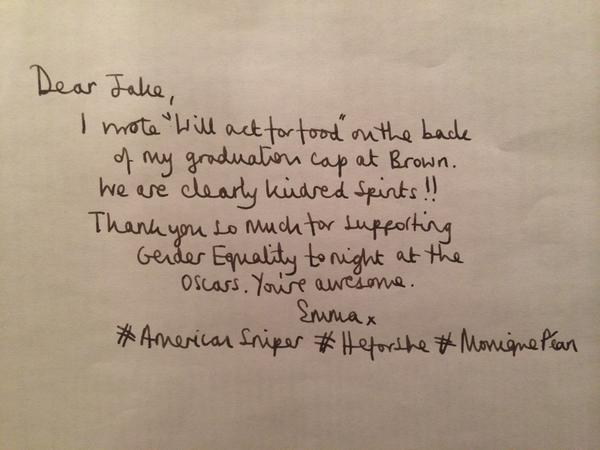 Dear Jake,
I wrote "Will act for food" on the back
of my graduation cap at Brown.
We are clearly kindred spirits!!
Thank you so much for supporting
Gender Equality tonight at the
Oscars. You're awesome.
Emma x
#American Sniper #Heforshe #MoniquePéan